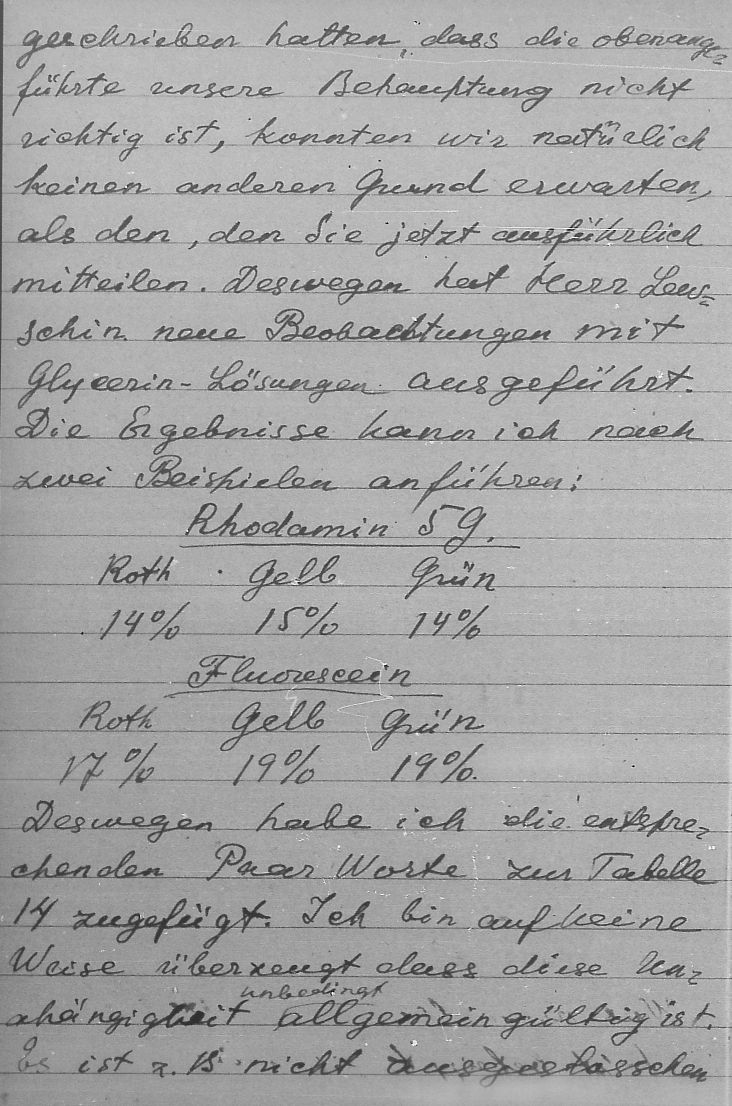 geschrieben hatten, dass die obenange=
führte unsere Behauptung nicht
richtig ist, konnten wir natürlich
keinen anderen Grund erwarten,
als den, den Sie jetzt ausführlich
mitteilen. Deswegen hat Herr Lew=
schin neue Beobachtungen mit
Glycerin-Lösungen ausgeführt.
Die Ergebnisse kann ich nach
zwei Beispielen anführen:
Rhodamin 5G.
Roth Gelb Grün
14% 15% 14%
Fluorescein
Roth Gelb Grün
17% 19% 19%.
Deswegen habe ich die entspre=
chenden Paar Worte zur Tabelle
14 zugefügt. Ich bin auf keine
Weise überzeugt dass diese Un=
unbedingt
abhängigkeit allgemein gültig ist.
Es ist z. B. nicht